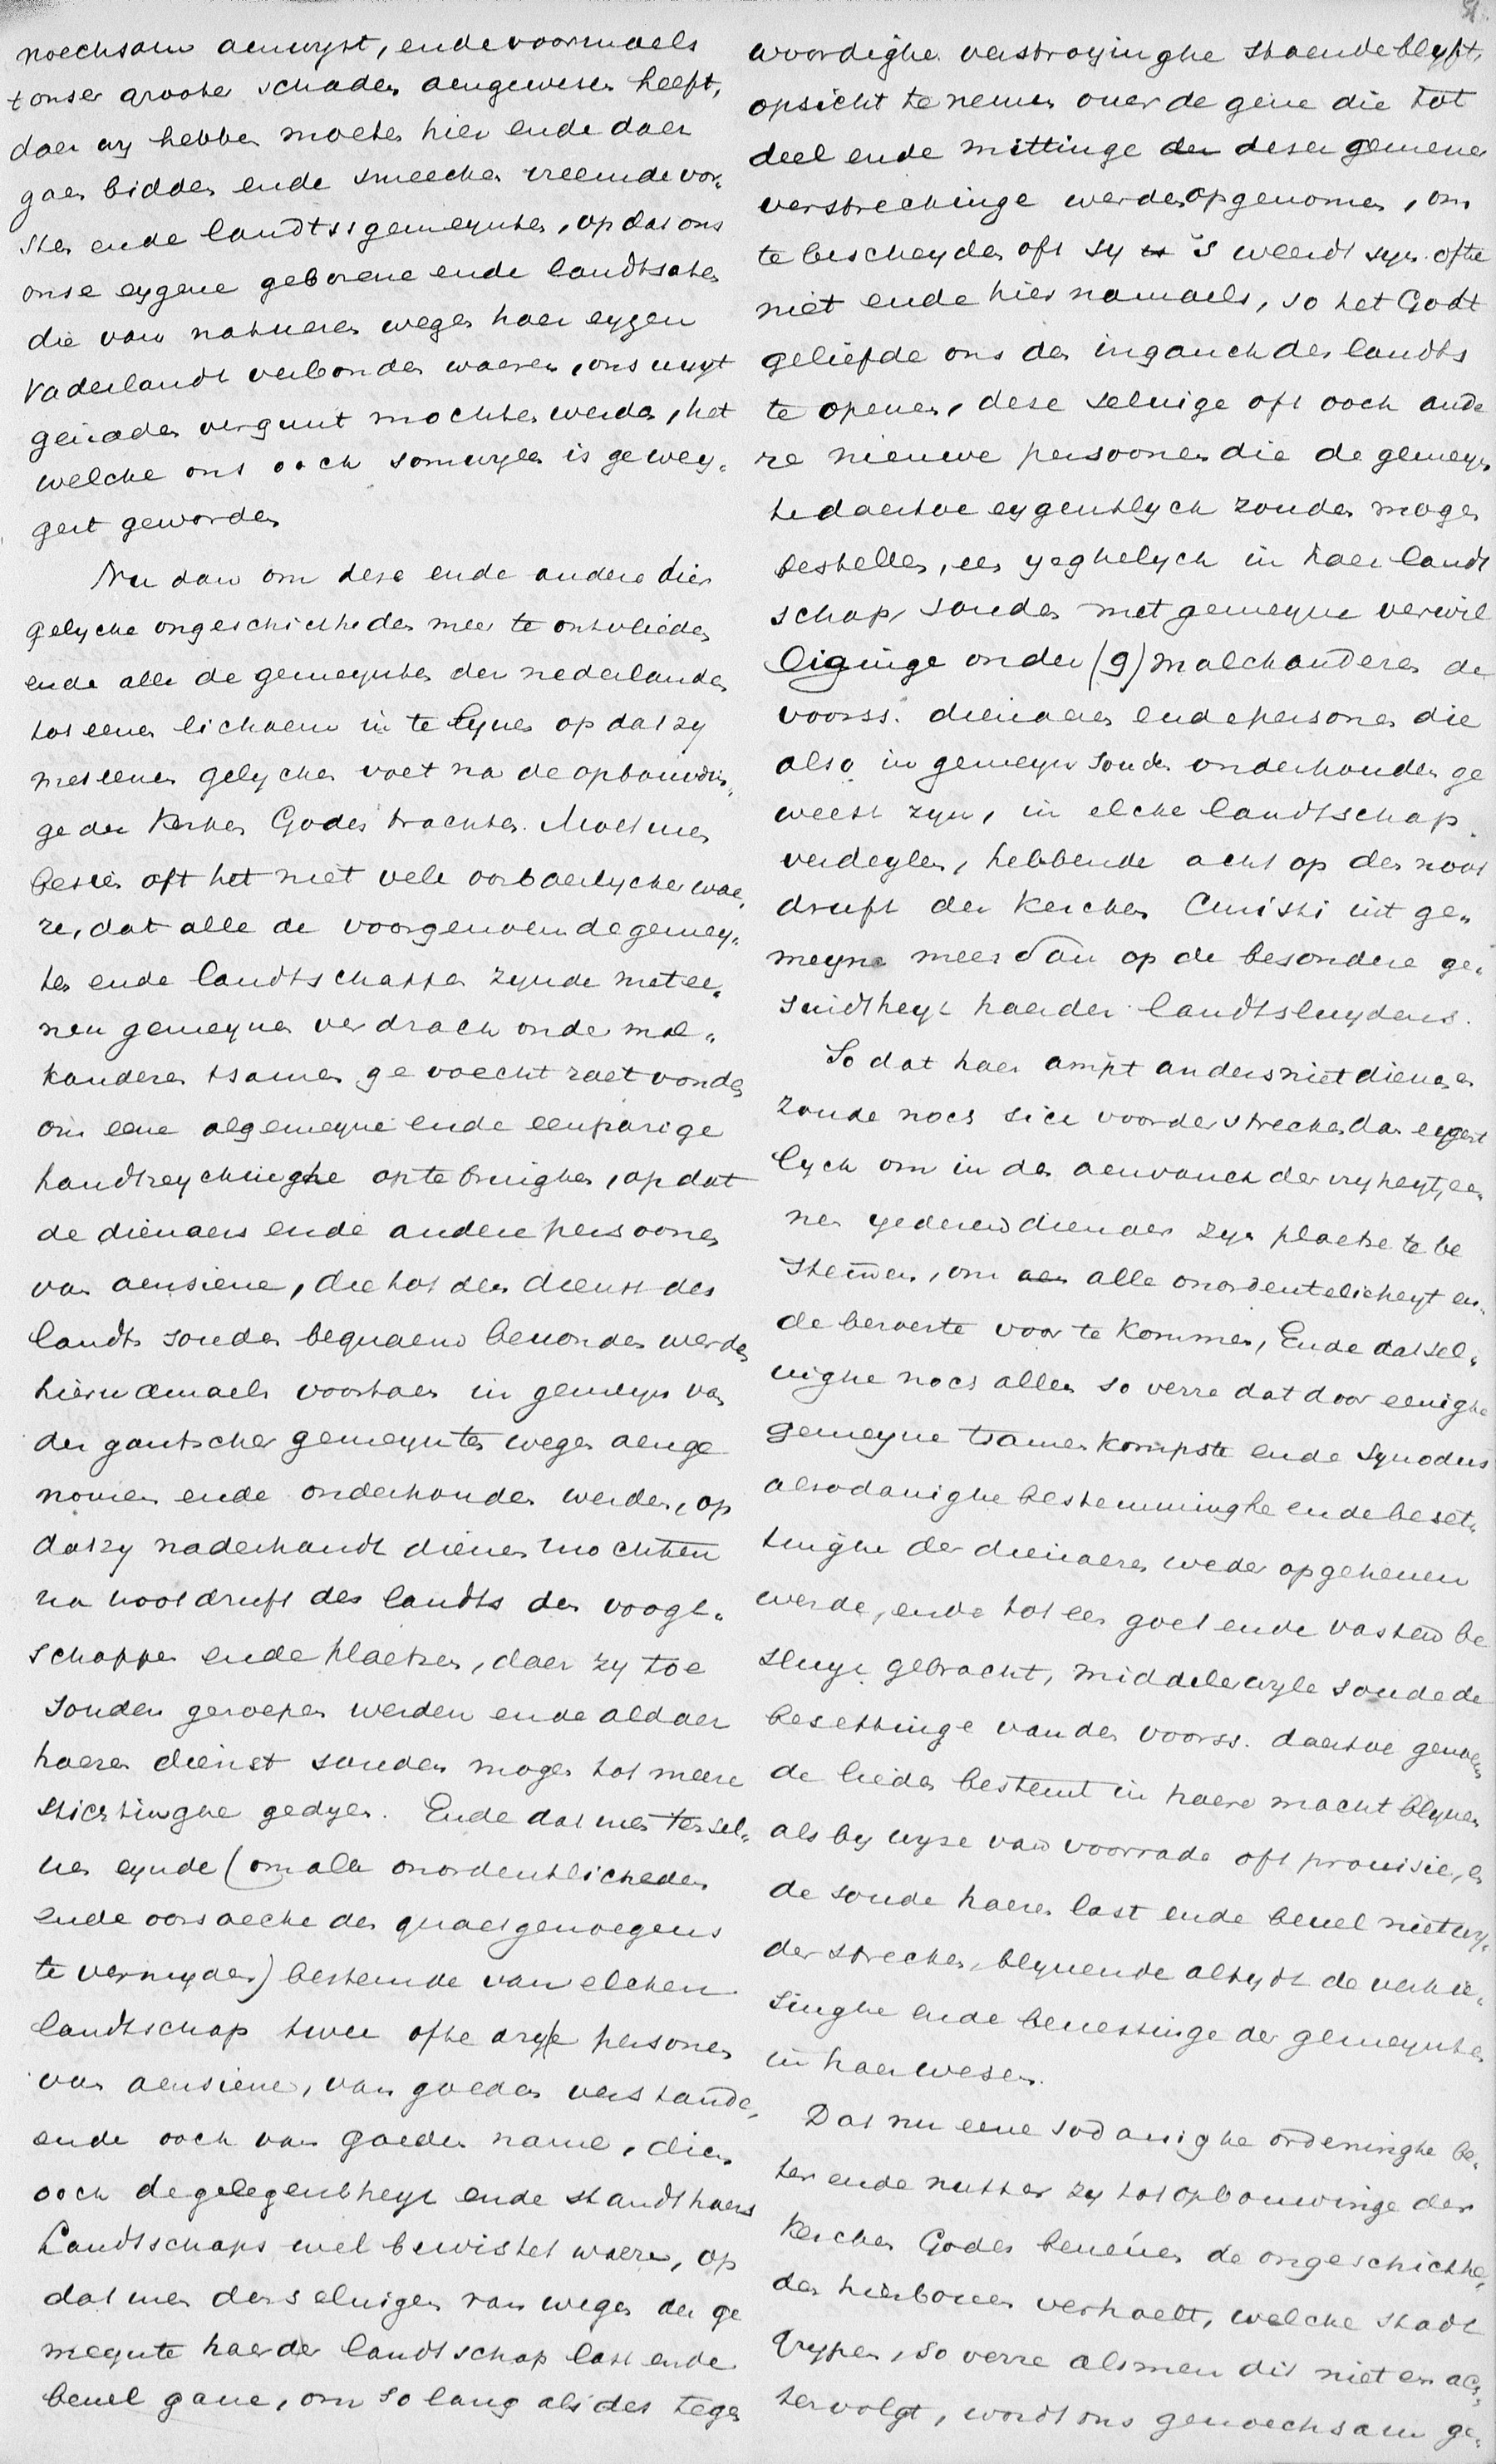 noechsam aenwyst, ende voormaels
tonser grooter schaden aengewesen heeft,
daer wy hebben moeten hier ende daer
gaen bidden ende smeecken vreemde vor-
sten ende landtssgemeynten, op dat ons
onse eygene geborene ende landtsaten
die van natueren wegen haer eygen
Vaderlandt verbonden waeren, ons uuyt
genaden vergunt mochten werden, het
welche ons ooch somwylen is gewey-
gert geworden
Nu dan om dese ende andere dier
gelycke ongeschichtheden meer te ontvlieden
ende alle de gemeynten der nederlanden
tot eenen lichaem in te lyven op dat zy
met eenen gelycken voet na de opbouwin-
ge der Kerken Godes trachten. Moet men
besien oft het niet vele oorbaerlycker wae-
re, dat alle de voorgenoemde gemey-
ten ende landtschappen zynde met ee-
nen gemeynen verdrach onder mal-
kanderen tsamen gevoecht raet vonden
om eene algemeyne ende eenparige
handtreychinghe op te bringhen, op dat
de dienaers ende andere persoonen
van aensiene, die tot den dienst des
landts souden bequaem bevonden werden
hiernaemaels voortaen in gemeyn van
der gantscher gemeynten wegen aenge
nomen ende onderhouden werden, op
dat zy naderhandt dienen mochten
na nootdruft des landts den voogt-
schappen ende plaetsen, daer zy toe
souden geroepen werden ende aldaer
haeren dienst souden mogen tot meere
stichtinghe gedyen. Ende dat men ter sel-
ven eynde (om alle onordentlicheden
ende oorsaecke des quaetgenoegens
te vermyden) bestemde van elchen
landtschap twee ofte drye persones
van aensiene, van goeden verstande,
ende ooch van goeden name, dien
ooch de gelegentheyt ende standt haers
Landtschaps wel bewistet waere, op
dat men derselvigen van wegen der ge
meynte haerder landtschap last ende
bevel gave, om so lang als des tegen
woordighe verstroyinghe staende blyft,
opsicht te nemen over de gene die tot
deel ende mittinge der deser gemene
verstreckinge werden opgenomen, om
te bescheyden oft sy 's weerdt syn ofte
niet ende hier namaels, so het Godt
geliefde ons den ingauch des landts
te openen, dese selvige oft ooch ande
re nieuwe persoonen die de gemeyn
te daertoe eygentlych zouden mogen
bestellen, een yeghelych in haer landt
schap, souden met gemeyne verwil
liginge onder (9) malchanderen de
voorss. dienaeren ende personen die
also in gemeyn souden onderhouden ge
weest zyn, in elche landtschap
verdeylen, hebbende acht op den noot
druft der kerchen Christi int ge-
meyne meer dan op de besondere ge-
sindtheyt haerder landtsluydens.
So dat haer ampt anders niet dienen en
zoude noch sich voorder strecken dan eygent
lych om in den aenvanck der vryheyt, ee-
nen yederen dienaer zyn plaetse te be
stemen, om aen alle onordentelicheyt en-
de beroerte voor te kommen, Ende dat sel-
vighe noch alleen so verre dat door eenighe
gemeyne tsamenkompste ende Synodus
alsodanighe bestemminghe ende beset-
tinghe der dienaeren weder opgeheven
werde, ende tot een goet ende vasten be
sluyt gebracht, middelerwyle soude de
besettinge van den voorss. daertoe genoem
de lieden bestemt in haere macht blyven
als by wyse van voorrade oft provisie, en
de soude haeren last ende bevel niet wy-
der strecken, blyvende altydt de verkie-
singhe ende bevestinge der gemeynten
in haer wesen.
Dat nu eene sodanighe ordeninghe be-
ter ende nutter zy tot opbouwinge der
Kerchen Godes beneven de ongeschichthe-
den hierboven verhaelt, welche stadt
grypen, so verre alsmen dit niet en ach-
tervolgt, wordt ons genoechsam ge-